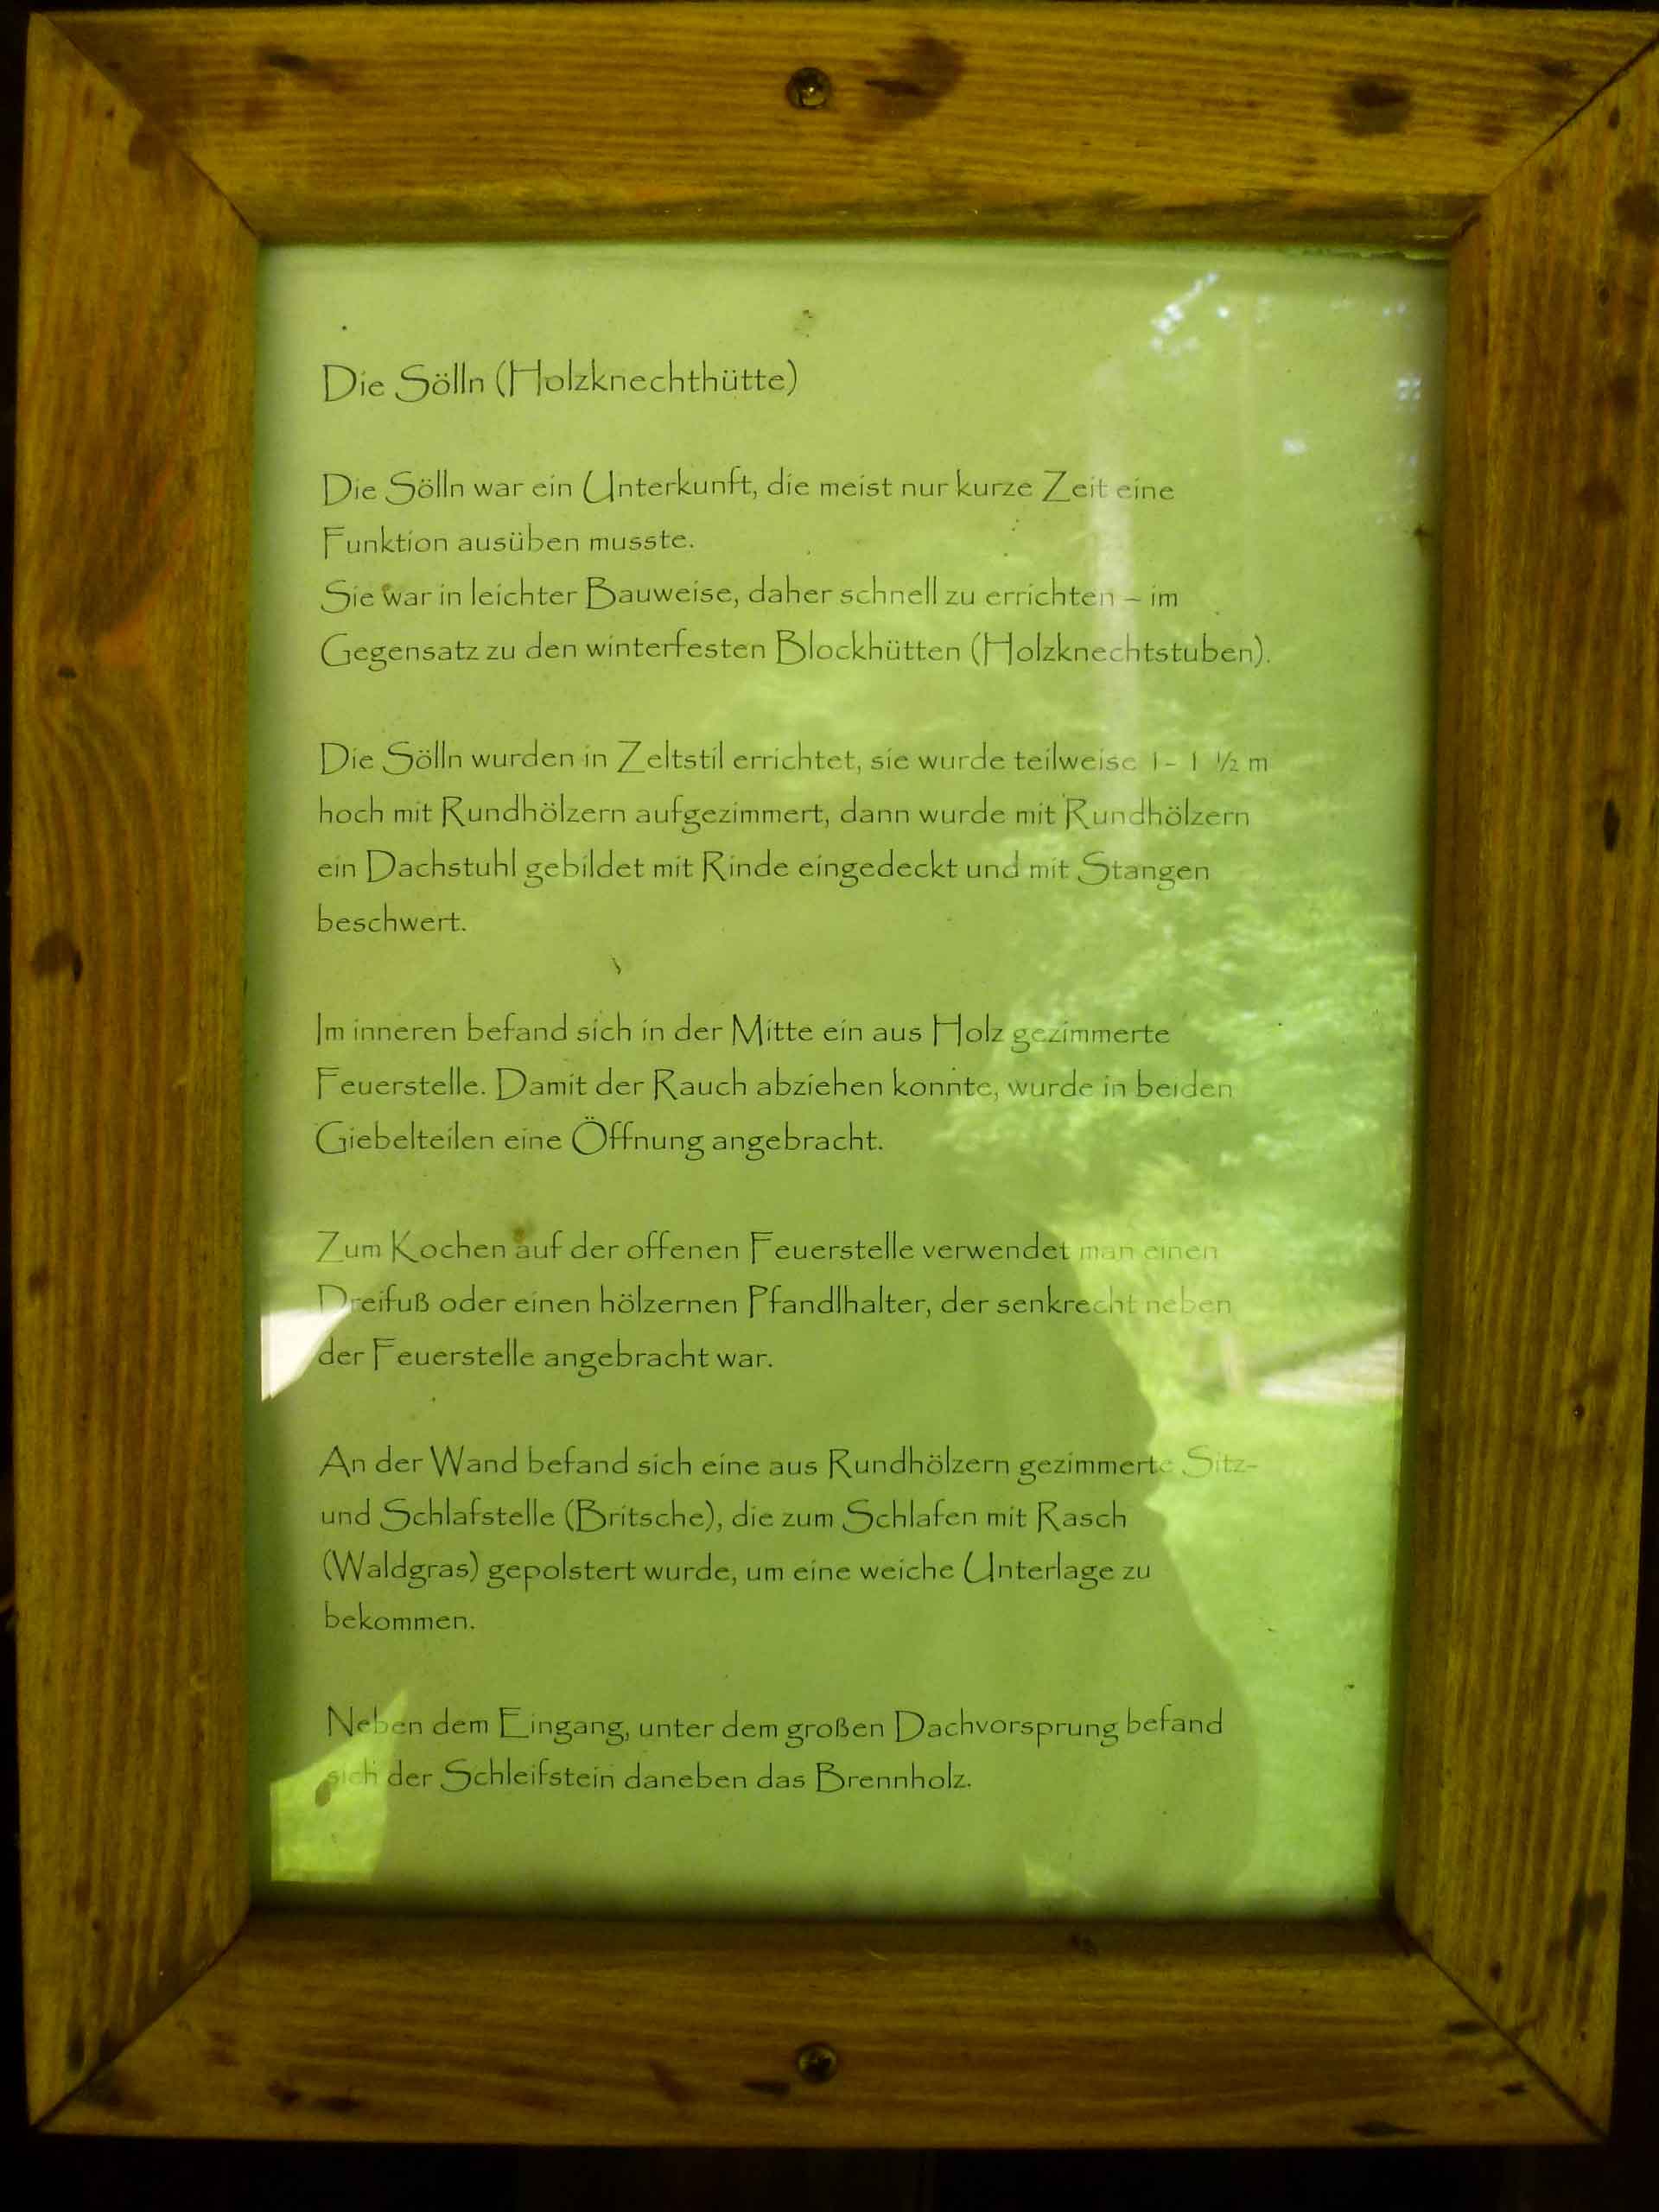 Die Sölln (Holzknechthütte)
Die Sölln war ein Unterkunft, die meist nur kurze Zeit eine
Funktion ausüben musste.
Sie war in leichter Bauweise, daher schnell zu errichten – im
Gegensatz zu den winterfesten Blockhütten (Holzknechtstuben).
Die Sölln wurden in Zeltstil errichtet, sie wurde teilweise 1 - 1 ½ m
hoch mit Rundhölzern aufgezimmert, dann wurde mit Rundhölzern
ein Dachstuhl gebildet mit Rinde eingedeckt und mit Stangen
beschwert.
Im inneren befand sich in der Mitte ein aus Holz gezimmerte
Feuerstelle. Damit der Rauch abziehen konnte, wurde in beiden
Giebelteilen eine Öffnung angebracht.
Zum Kochen auf der offenen Feuerstelle verwendet man einen
Dreifuß oder einen hölzernen Pfandlhalter, der senkrecht neben
der Feuerstelle angebracht war.
An der Wand befand sich eine aus Rundhölzern gezimmerte Sitz-
und Schlafstelle (Britsche), die zum Schlafen mit Rasch
(Waldgras) gepolstert wurde, um eine weiche Unterlage zu
bekommen.
Neben dem Eingang, unter dem großen Dachvorsprung befand
sich der Schleifstein daneben das Brennholz.